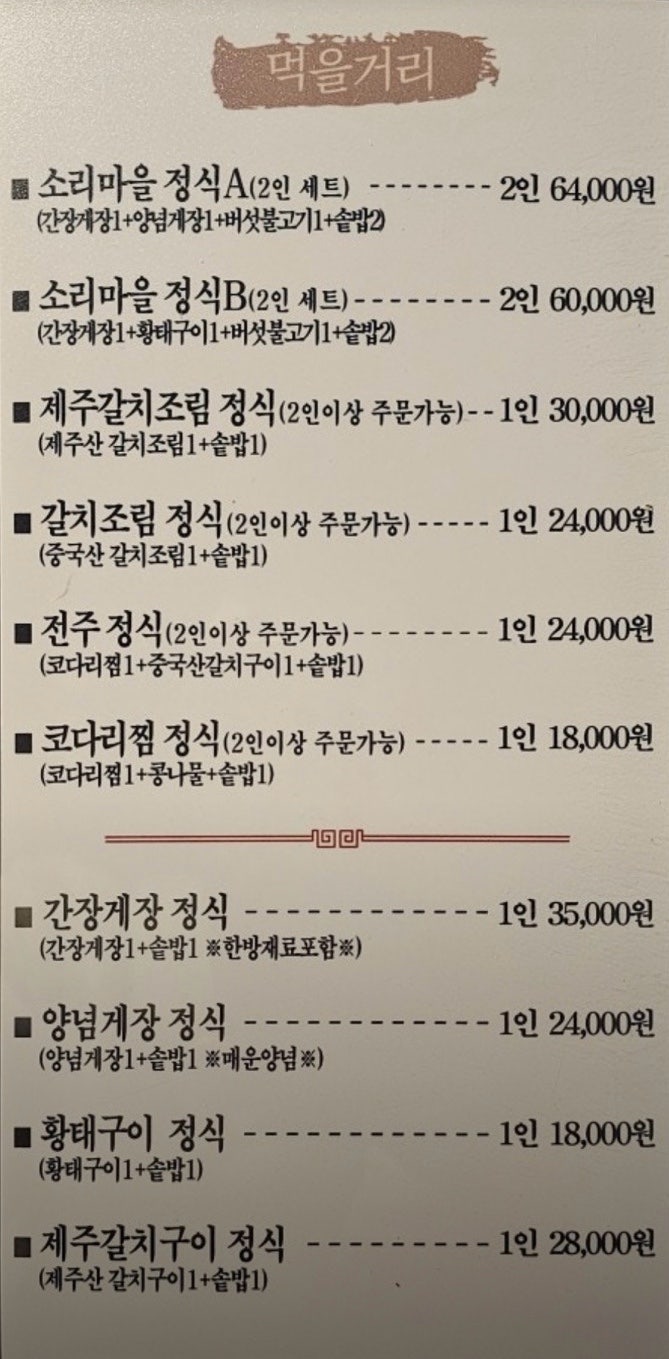 먹을거리
■ 소리마을 정식A(2인 세트) -------- 2인 64,000원
(간장게장1+양념게장1+버섯불고기1+솥밥2)
■ 소리마을 정식B(2인 세트)-------- 2인 60,000원
(간장게장1+황태구이1+버섯불고기1+솥밥2)
■ 제주갈치조림 정식(2인이상 주문가능)--1인 30,000원
(제주산 갈치조림1+솥밥1)
■ 갈치조림 정식(2인이상 주문가능) ----- 1인 24,000원
(중국산 갈치조림1+솥밥1)
■ 전주 정식(2인이상 주문가능)-------- 1인 24,000원
(코다리찜1+중국산갈치구이1+솥밥1)
■ 코다리찜 정식(2인이상 주문가능) ----- 1인 18,000원
(코다리찜1+콩나물+솥밥1)
■ 간장게장 정식 ------------ 1인 35,000원
(간장게장1+솥밥1 ※한방재료포함※)
■ 양념게장 정식 ------------ 1인 24,000원
(양념게장1+솥밥1 ※매운양념※)
■ 황태구이 정식 ------------ 1인 18,000원
(황태구이1+솥밥1)
■ 제주갈치구이 정식 --------- 1인 28,000원
(제주산 갈치구이1+솥밥1)